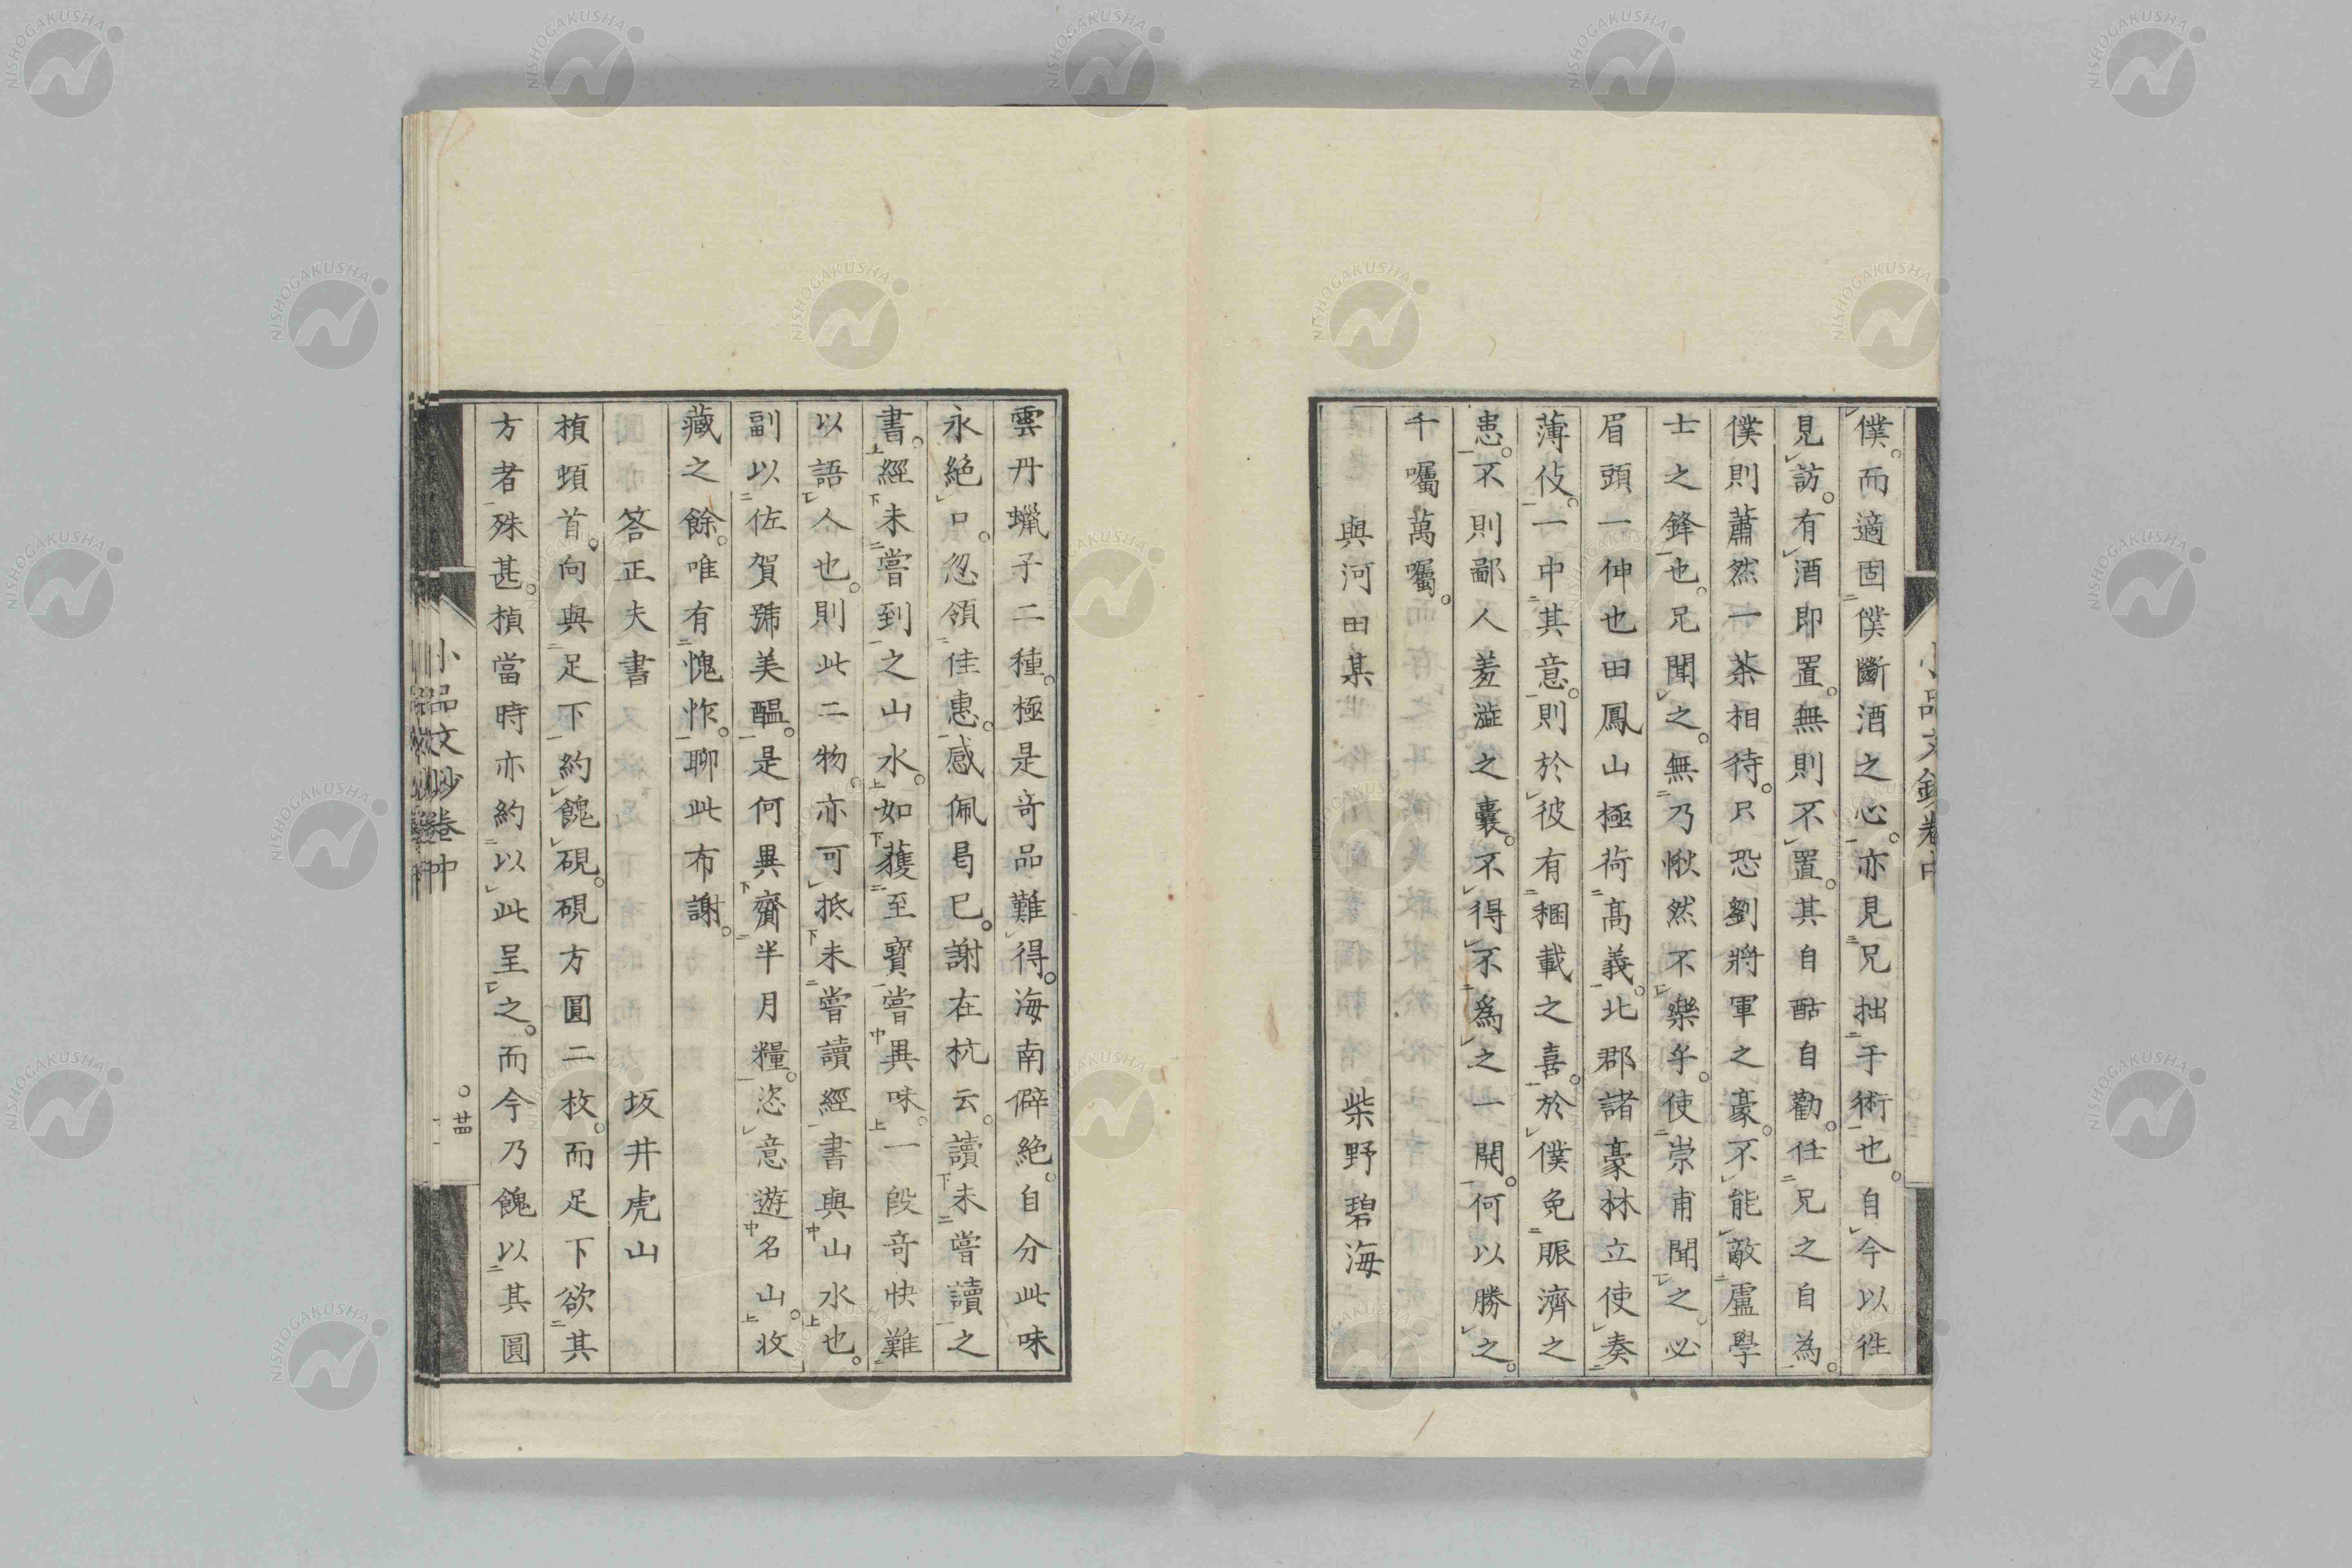 僕。而適固僕斷酒之心。亦見兄拙于術也。自今以徃
見訪。有酒即置。無則不置。其自酤自勸。任兄之自為。
僕則蕭然一茶相待。只恐劉將軍之豪。不能敵盧學
士之鋒也。兄聞之。無乃愀然不樂乎。使崇甫聞之。必
眉頭一伸也田鳳山極荷高義。北郡諸豪林立使奏
薄伎。一中其意。則於彼有稇載之喜。於僕免賑濟之
患。不則鄙人羞澁之囊。不得不為之一開。何以勝之。
千囑萬囑。
與河田某 柴野碧海
雲丹蠟子二種。極是奇品難得。海南僻絶。自分此味
永絶口。忽領佳惠。感佩曷已。謝在杭云。讀未嘗讀之
書。經未嘗到之山水。如獲至寳嘗異味。一段奇快難
以語人也。則此二物。亦可抵未嘗讀經書與山水也。
副以佐賀號美醖。是何異齎半月糧。恣意遊名山。收
藏之餘。唯有愧怍。聊此布謝。
答正夫書 坂井虎山
楨頓首。向與足下約餽硯。硯方圓二枚。而足下欲其
方者殊甚。楨當時亦約以此呈之。而今乃餽以其圓
小品文鈔卷中
小品文鈔卷中 〇廿四